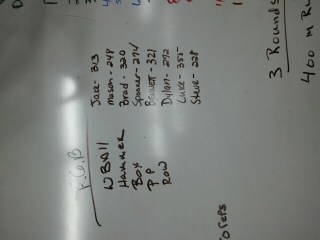 F.G.B
WBAll
Hammer
Box
PP
Row
Jake - 313
Mason - 248
Brad - 320
Spencer - 274
Bennett - 321
Dylan - 272
Luke - 355
Steve - 228
3 Rounds
400 m Ru